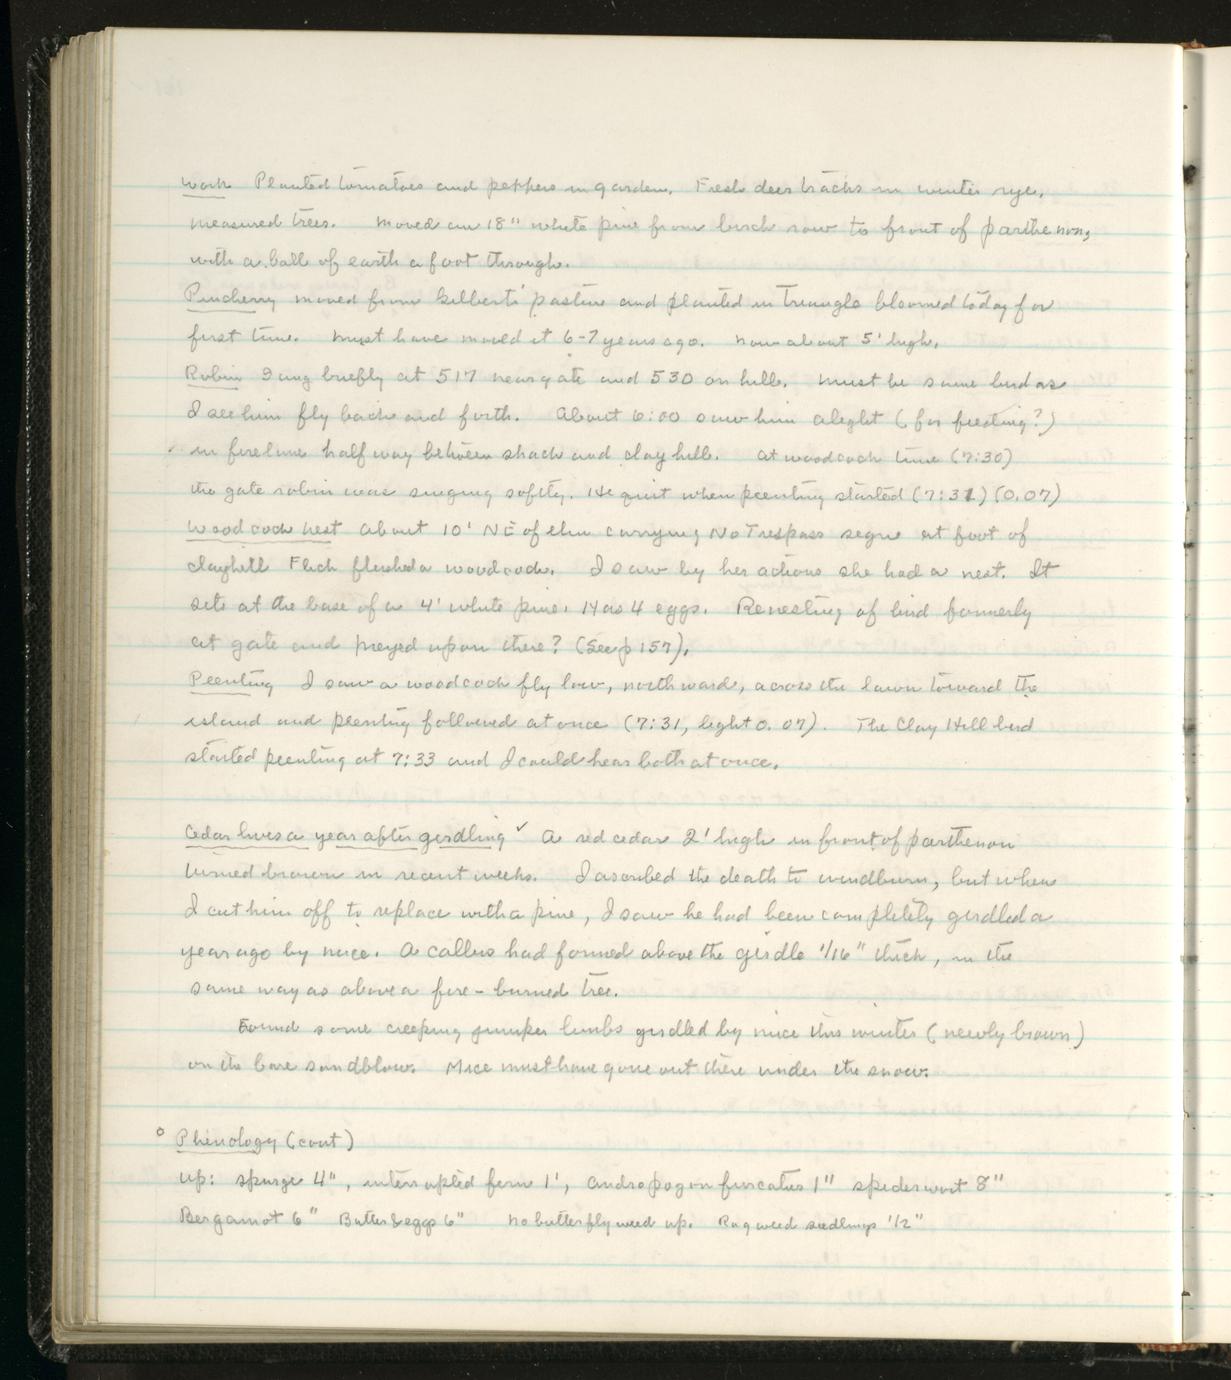 Work Planted tomatoes and peppers in garden. Fresh deer tracks in winter rye.
Measured trees. Moved an 18" white pine from birch row to front of parthenon,
with a ball of earth a foot through.
Pincherry moved from Gilberts' pasture and planted in Triangle bloomed today for
first time. Must have moved it 6-7 years ago. Now about 5' high.
Robin Sang briefly at 517 near gate and 530 on hill. Must be same bird as
I see him fly back and forth. About 6:00 saw him alight (for feeding?)
in fireline half way between shack and clay hill. At woodcock time (7:30)
the gate robin was singing softly. He quit when peenting started (7:31) (0.07)
Woodcock nest About 10' NE of elm carrying No Trespass sign at foot of
clayhill Flick flushed a woodcock. I saw by her actions she had a nest. It
sits at the base of a 4' white pine. Has 4 eggs. Renesting of bird formerly
at gate and preyed upon there? (See p 157).
Peenting I saw a woodcock fly low, northward, across the lawn toward the
island and peenting followed at once (7:31, light 0.07). The Clay Hill bird
started peenting at 7:33 and I could hear both at once.
Cedar lives a year after girdling ✓ A red cedar 2' high in front of parthenon
turned brown in recent weeks. I ascribed the death to windburn, but when
I cut him off to replace with a pine, I saw he had been completely girdled a
year ago by mice. A callus had formed above the girdle 1/16" thick, in the
same way as above a fire-burned tree.
Found some creeping juniper limbs girdled by mice this winter (newly brown)
on the bare sandblow. Mice must have gone out there under the snow.
° Phenology (cont)
Up: spurge 4", interrupted fern 1', andropogon furcatus 1" spiderwort 8"
Bergamot 6" Butter & eggs 6" No butterfly weed up. Ragweed seedlings 1/2"